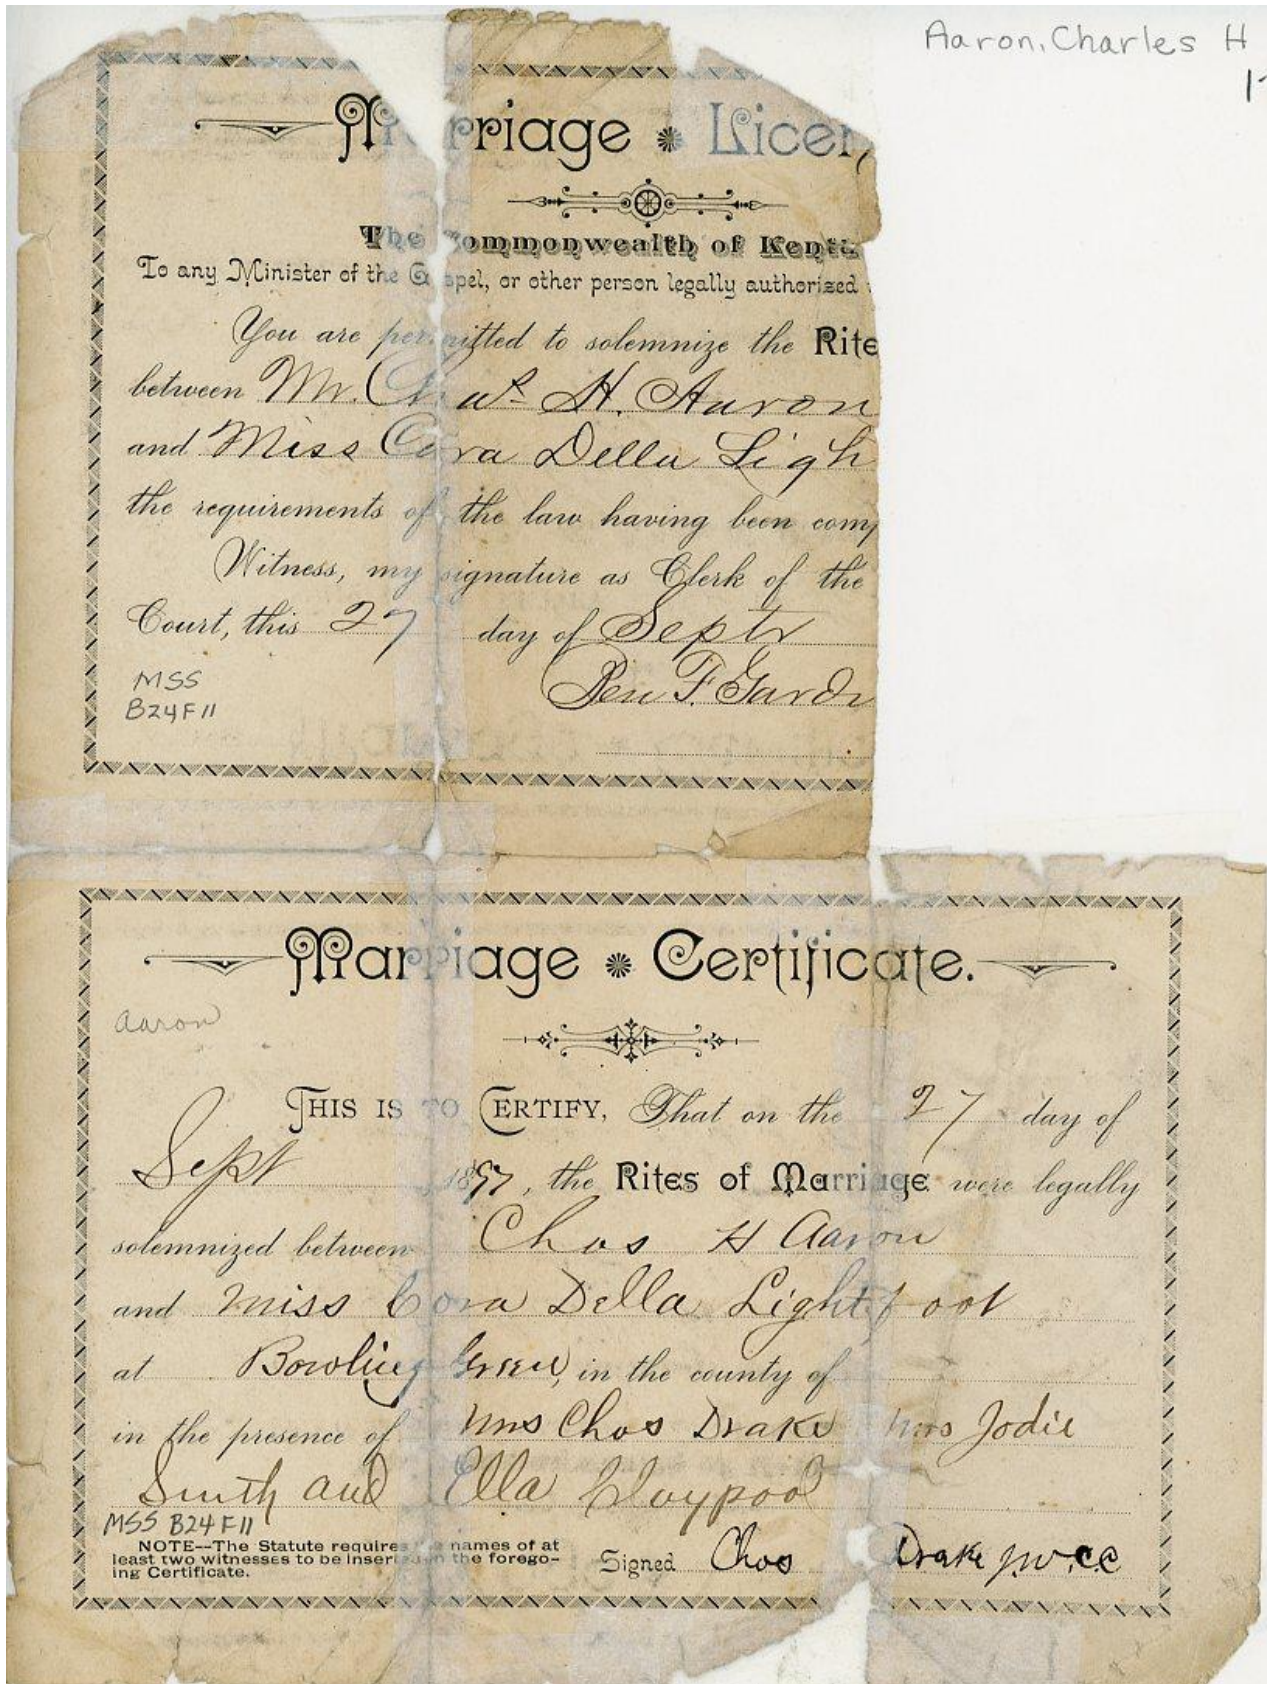 Aaron, Charles H
Marriage Licen
The Commonwealth of Kentu
To any Minister of the Gospel, or other person legally authorized
You are permitted to solemnize the Rite
between Mr. Chas H. Aaron
and Miss Cora Della Ligh
the requirements of the law having been comp
Witness, my signature as Clerk of the
Court, this 27 day of Septr
Ben F. Gardn
MSS
B24F11
Marriage Certificate.
Aaron
THIS IS TO CERTIFY, That on the 27 day of
Sept 1897, the Rites of Marriage were legally
solemnized between Chas H Aaron
and Miss Cora Della Lightfoot
at Bowling Green, in the county of
in the presence of Mrs Chas Drake Mrs Jodie
Smith and Ella Claypool
MSS B24 F11
NOTE--The Statute requires names of at
least two witnesses to be inser in the forego-
ing Certificate.
Signed Chas Drake J.W.C.C